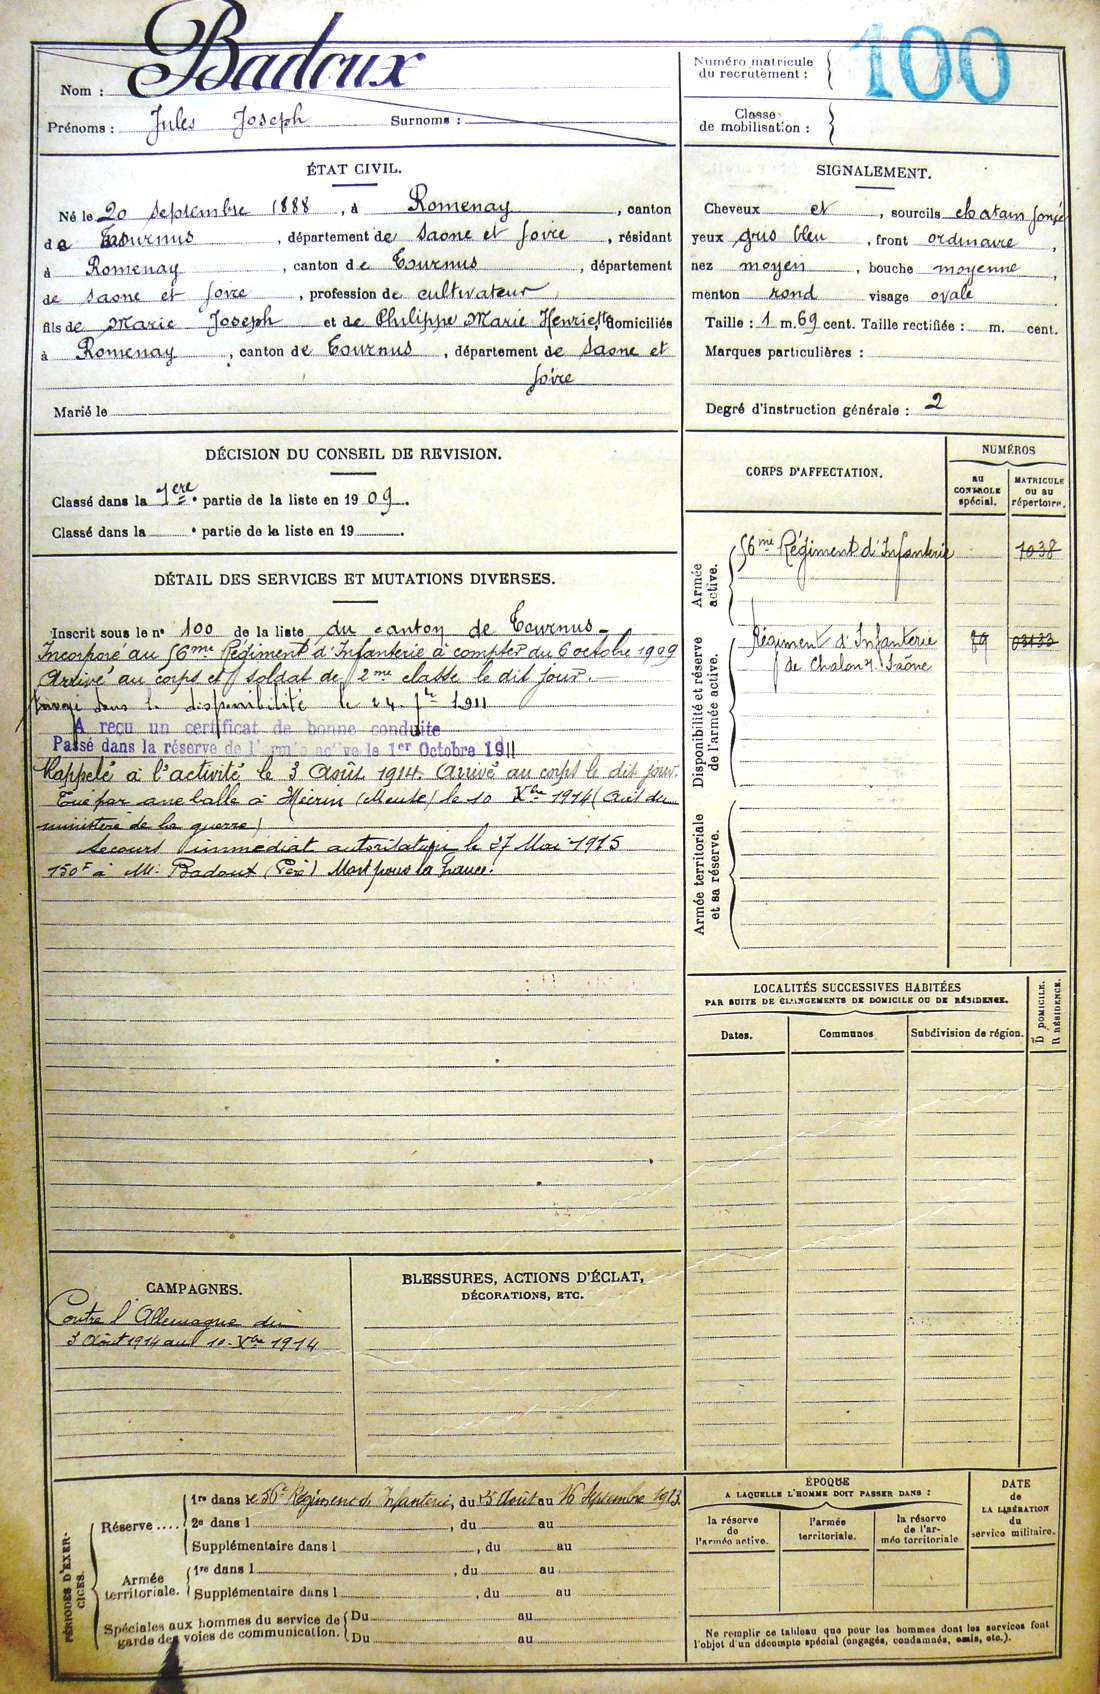 Nom : Badoux
Prénoms : Jules Joseph Surnoms :
Numéro matricule
du recrutement : 100
Classe
de mobilisation :
ÉTAT CIVIL.
Né le 20 septembre 1888, à Romenay, canton
de Tournus, département de Saone et Loire, résidant
à Romenay, canton de Tournus, département
de Saone et Loire, profession de cultivateur
fils de Marie Joseph et de Philippe Marie Henriette domiciliés
à Romenay, canton de Tournus, département de Saone et
Loire
Marié le
SIGNALEMENT.
Cheveux et, sourcils chatain foncé
yeux gris bleu, front ordinaire,
nez moyen, bouche moyenne,
menton rond visage ovale
Taille : 1 m. 69 cent. Taille rectifiée : m. cent.
Marques particulières :
Degré d'instruction générale : 2
DÉCISION DU CONSEIL DE REVISION.
Classé dans la 1ere partie de la liste en 1909.
Classé dans la e partie de la liste en 19
DÉTAIL DES SERVICES ET MUTATIONS DIVERSES.
Inscrit sous le n° 100 de la liste du canton de Tournus
Incorporé au 56me Régiment d'Infanterie à compter du 6 octobre 1909
Arrivé au corps et soldat de 2me classe le dit jour.
Envoyé dans la disponibilité le 24 7bre 1911
A reçu un certificat de bonne conduite
Passé dans la réserve de l'armée active le 1er Octobre 1911
Rappelé à l'activité le 3 Août 1914. Arrivé au corps le dit jour.
Tué par une balle à Mécrin (Meuse) le 10 Xbre 1914 (avis du
ministère de la guerre)
Secours immédiat le 27 Mai 1915
150F à Mr Badoux (Père) Mort pour la France.
CORPS D'AFFECTATION.
NUMÉROS
au
CONTROLE
spécial.
MATRICULE
ou au
répertoire.
Armée
active.
56me Régiment d'Infanterie 1038
Disponibilité et réserve
de l'armée active.
Régiment d'Infanterie 89
de Chalon s/ Saône
Armée territoriale
et sa réserve.
LOCALITÉS SUCCESSIVES HABITÉES
PAR SUITE DE CHANGEMENTS DE DOMICILE OU DE RÉSIDENCE.
Dates. Communes Subdivision de région.
D DOMICILE.
R RÉSIDENCE.
CAMPAGNES.
Contre l'Allemagne du
3 Août 1914 au 10 Xbre 1914
BLESSURES, ACTIONS D'ÉCLAT,
DÉCORATIONS, ETC.
PÉRIODES D'EXER-
CICES.
Réserve ....
1re dans le 56e Régiment d'Infanterie, du 25 Août au 16 Septembre 1913.
2e dans l, du au
Supplémentaire dans l, du au
Armée
territoriale.
1re dans l, du au
Supplémentaire dans l, du au
Spéciales aux hommes du service de
garde des voies de communication.
Du au
Du au
ÉPOQUE
A LAQUELLE L'HOMME DOIT PASSER DANS :
la réserve
de
l'armée active.
l'armée
territoriale.
la réserve
de l'ar-
mée territoriale
DATE
de
LA LIBÉRATION
du
service militaire.
Ne remplir ce tableau que pour les hommes dont les services font
l'objet d'un décompte spécial (engagés, condamnés, omis, etc.).